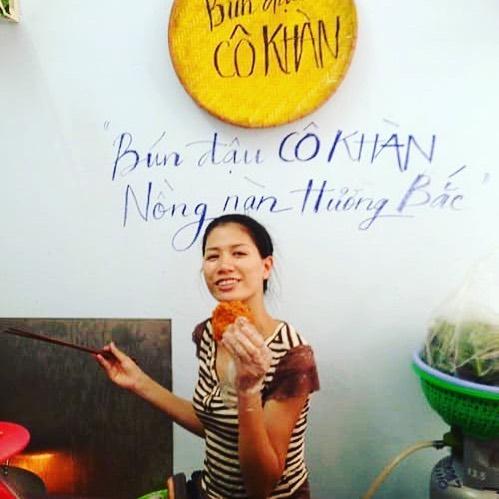 Bún đậu
CÔ KHÀN
"Bún đậu CÔ KHÀN
Nồng nàn Hương Bắc"
12.5